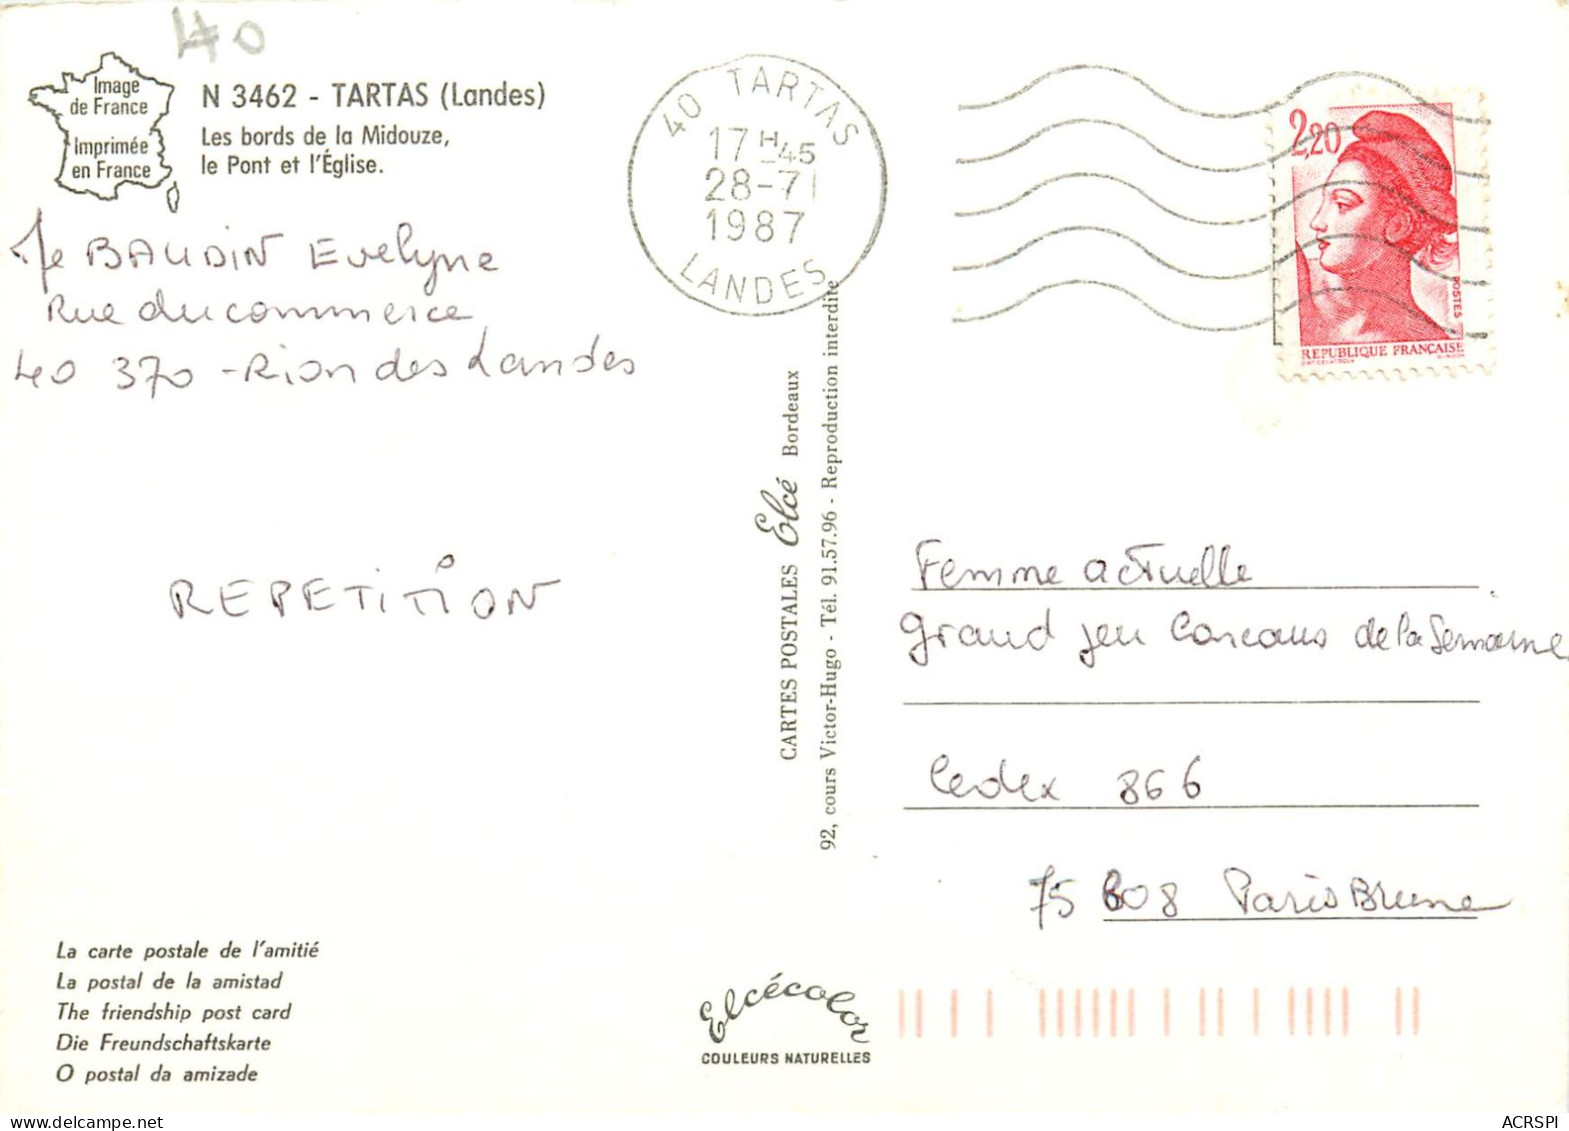 40
Image
de France
Imprimée
en France
N 3462 - TARTAS (Landes)
Les bords de la Midouze,
le Pont et l'Église.
Me BAUDIN Evelyne
Rue du commerce
40 370 - Rion des Landes
REPETITION
La carte postale de l'amitié
La postal de la amistad
The friendship post card
Die Freundschaftskarte
O postal da amizade
40 TARTAS
17 H 45
28-7
1987
LANDES
CARTES POSTALES Elcé Bordeaux
92, cours Victor-Hugo - Tél. 91.57.96 - Reproduction interdite
Elcécolor
COULEURS NATURELLES
2,20
POSTES
REPUBLIQUE FRANÇAISE
Femme actuelle
grand jeu Concours de la Semaine
Cedex 866
75 608 Paris Brune
ACRSPI